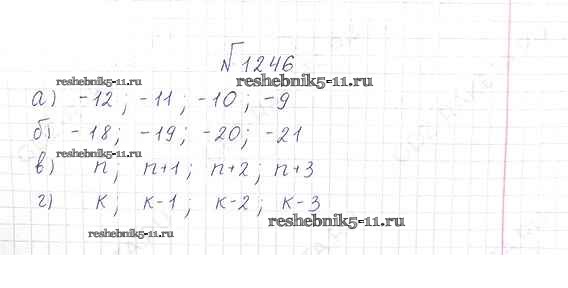 №1246
reshebnik5-11.ru reshebnik5-11.ru
а) -12; -11; -10; -9
б) -18; -19; -20; -21
reshebnik5-11.ru
в) n; n+1; n+2; n+3
г) к; к-1; к-2; к-3
reshebnik5-11.ru
reshebnik5-11.ru